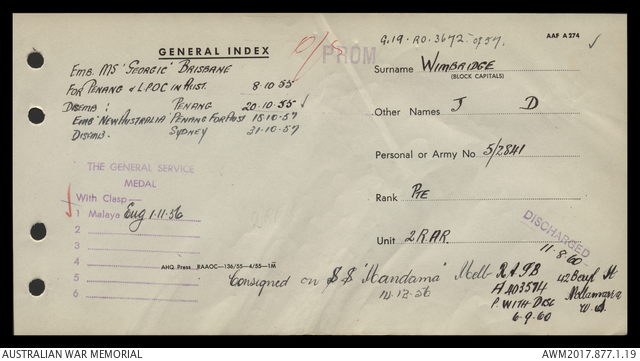 G.19. RO. 3672 of 57.
AAF A 274
GENERAL INDEX
O/S
PROM
EMB. MS 'GEORGIC' BRISBANE
FOR PENANG & LPOC IN AUST. 8.10.55
DISEMB: PENANG 20.10.55
EMB 'NEW AUSTRALIA' PENANG FOR AUST 18.10.57
DISEMB. SYDNEY 31.10.57
Surname WIMBRIDGE
(BLOCK CAPITALS)
Other Names J D
Personal or Army No 5/2841
Rank PTE
Unit 2 RAR.
THE GENERAL SERVICE
MEDAL
With Clasp—
1 Malaya Eng 1.11.56
2
3
4
5
6
AHQ Press RAAOC—136/55—4/55—1M
DISCHARGED
11.8.60
Consigned on S.S 'Mandama' Melb
14.12.56
A 403574
P. WITH DISC
6.9.60
42 Beryl St
W.A.
AUSTRALIAN WAR MEMORIAL
AWM2017.877.1.19